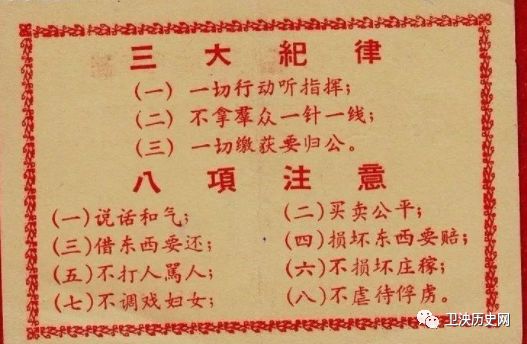 三大紀律
(一) 一切行动听指挥;
(二) 不拿羣众一针一线;
(三) 一切缴获要归公。
八項注意
(一)说话和气;
(二)买卖公平;
(三)借东西要还;
(四)损坏东西要赔;
(五)不打人駡人;
(六)不损坏庄稼;
(七)不调戏妇女;
(八)不虐待俘虏。
卫泱历史网